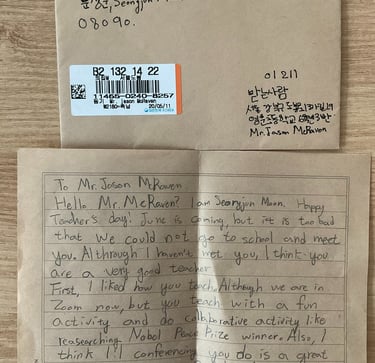 문성준, Seongjun
08090.
B2 132 14 22
11465-0240-8257
Mr. Jason McRaven
20/05/11
01211
받는사람
서울 강북구
Mr. Jason McRaven
To Mr. Jason McRaven
Hello Mr. McRaven? I am Seongjun Moon. Happy
Teacher's day! June is coming, but it is too bad
that We could not go to school and meet
you. Althrough I haven't met you, I think you
are a very good teacher
First, I liked how you teach. Although we are in
Zoom now, but you teach with a fun
activity and do collaborative activity like
reasearching Nobel Peace Prize winner. Also, I
think 1:1 conferencing you do is a great